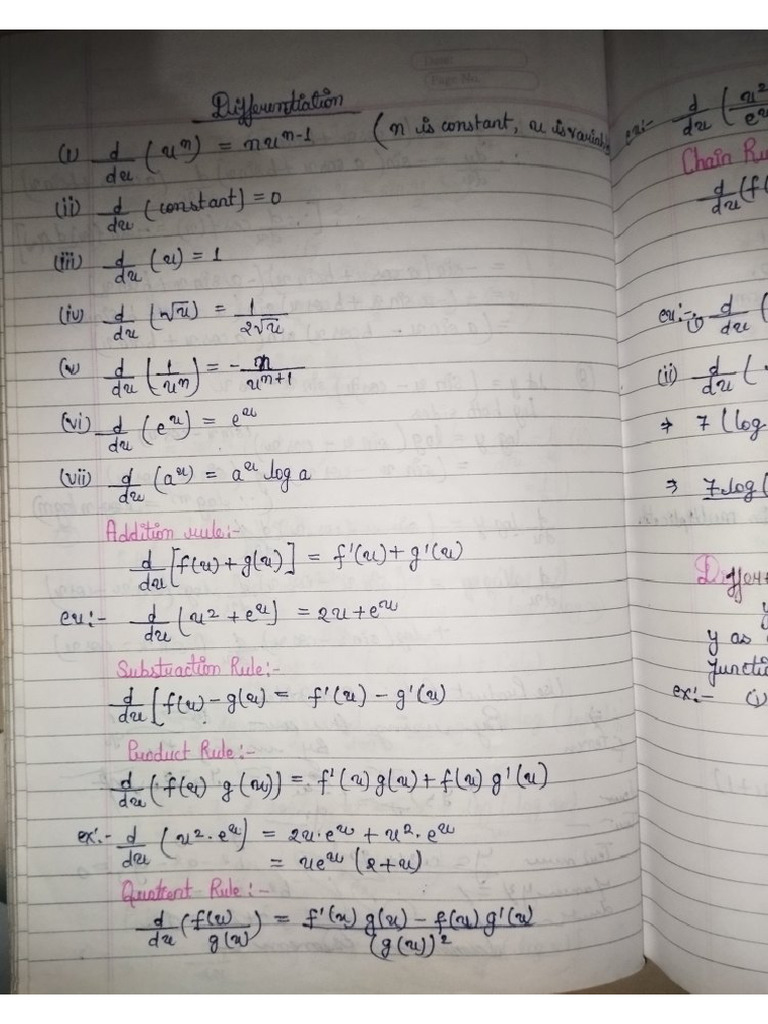 Differentiation
(i) d/dx (xⁿ) = nxⁿ⁻¹ (n is constant, x is variable
(ii) d/dx (constant) = 0
(iii) d/dx (x) = 1
(iv) d/dx (√x) = 1/2√x
(v) d/dx (1/xⁿ) = -n/xⁿ⁺¹
(vi) d/dx (eˣ) = eˣ
(vii) d/dx (aˣ) = aˣ log a
Addition rule:-
d/dx [f(x) + g(x)] = f'(x) + g'(x)
ex:- d/dx (x² + eˣ) = 2x + eˣ
Substraction Rule:-
d/dx [f(x) - g(x) = f'(x) - g'(x)
Product Rule:-
d/dx (f(x) g(x)) = f'(x) g(x) + f(x) g'(x)
ex:- d/dx (x² · eˣ) = 2x·eˣ + x²·eˣ
= xeˣ (2+x)
Quotient Rule:-
d/dx (f(x)/g(x)) = f'(x) g(x) - f(x) g'(x)/(g(x))²
ex:- d/dx (x²/eˣ
Chain Ru
d/dx (f(
ex:- (i) d/dx (
(ii) d/dx (
⇒ 7 (log
⇒ 7.log(
y as
functi
ex:- (i)